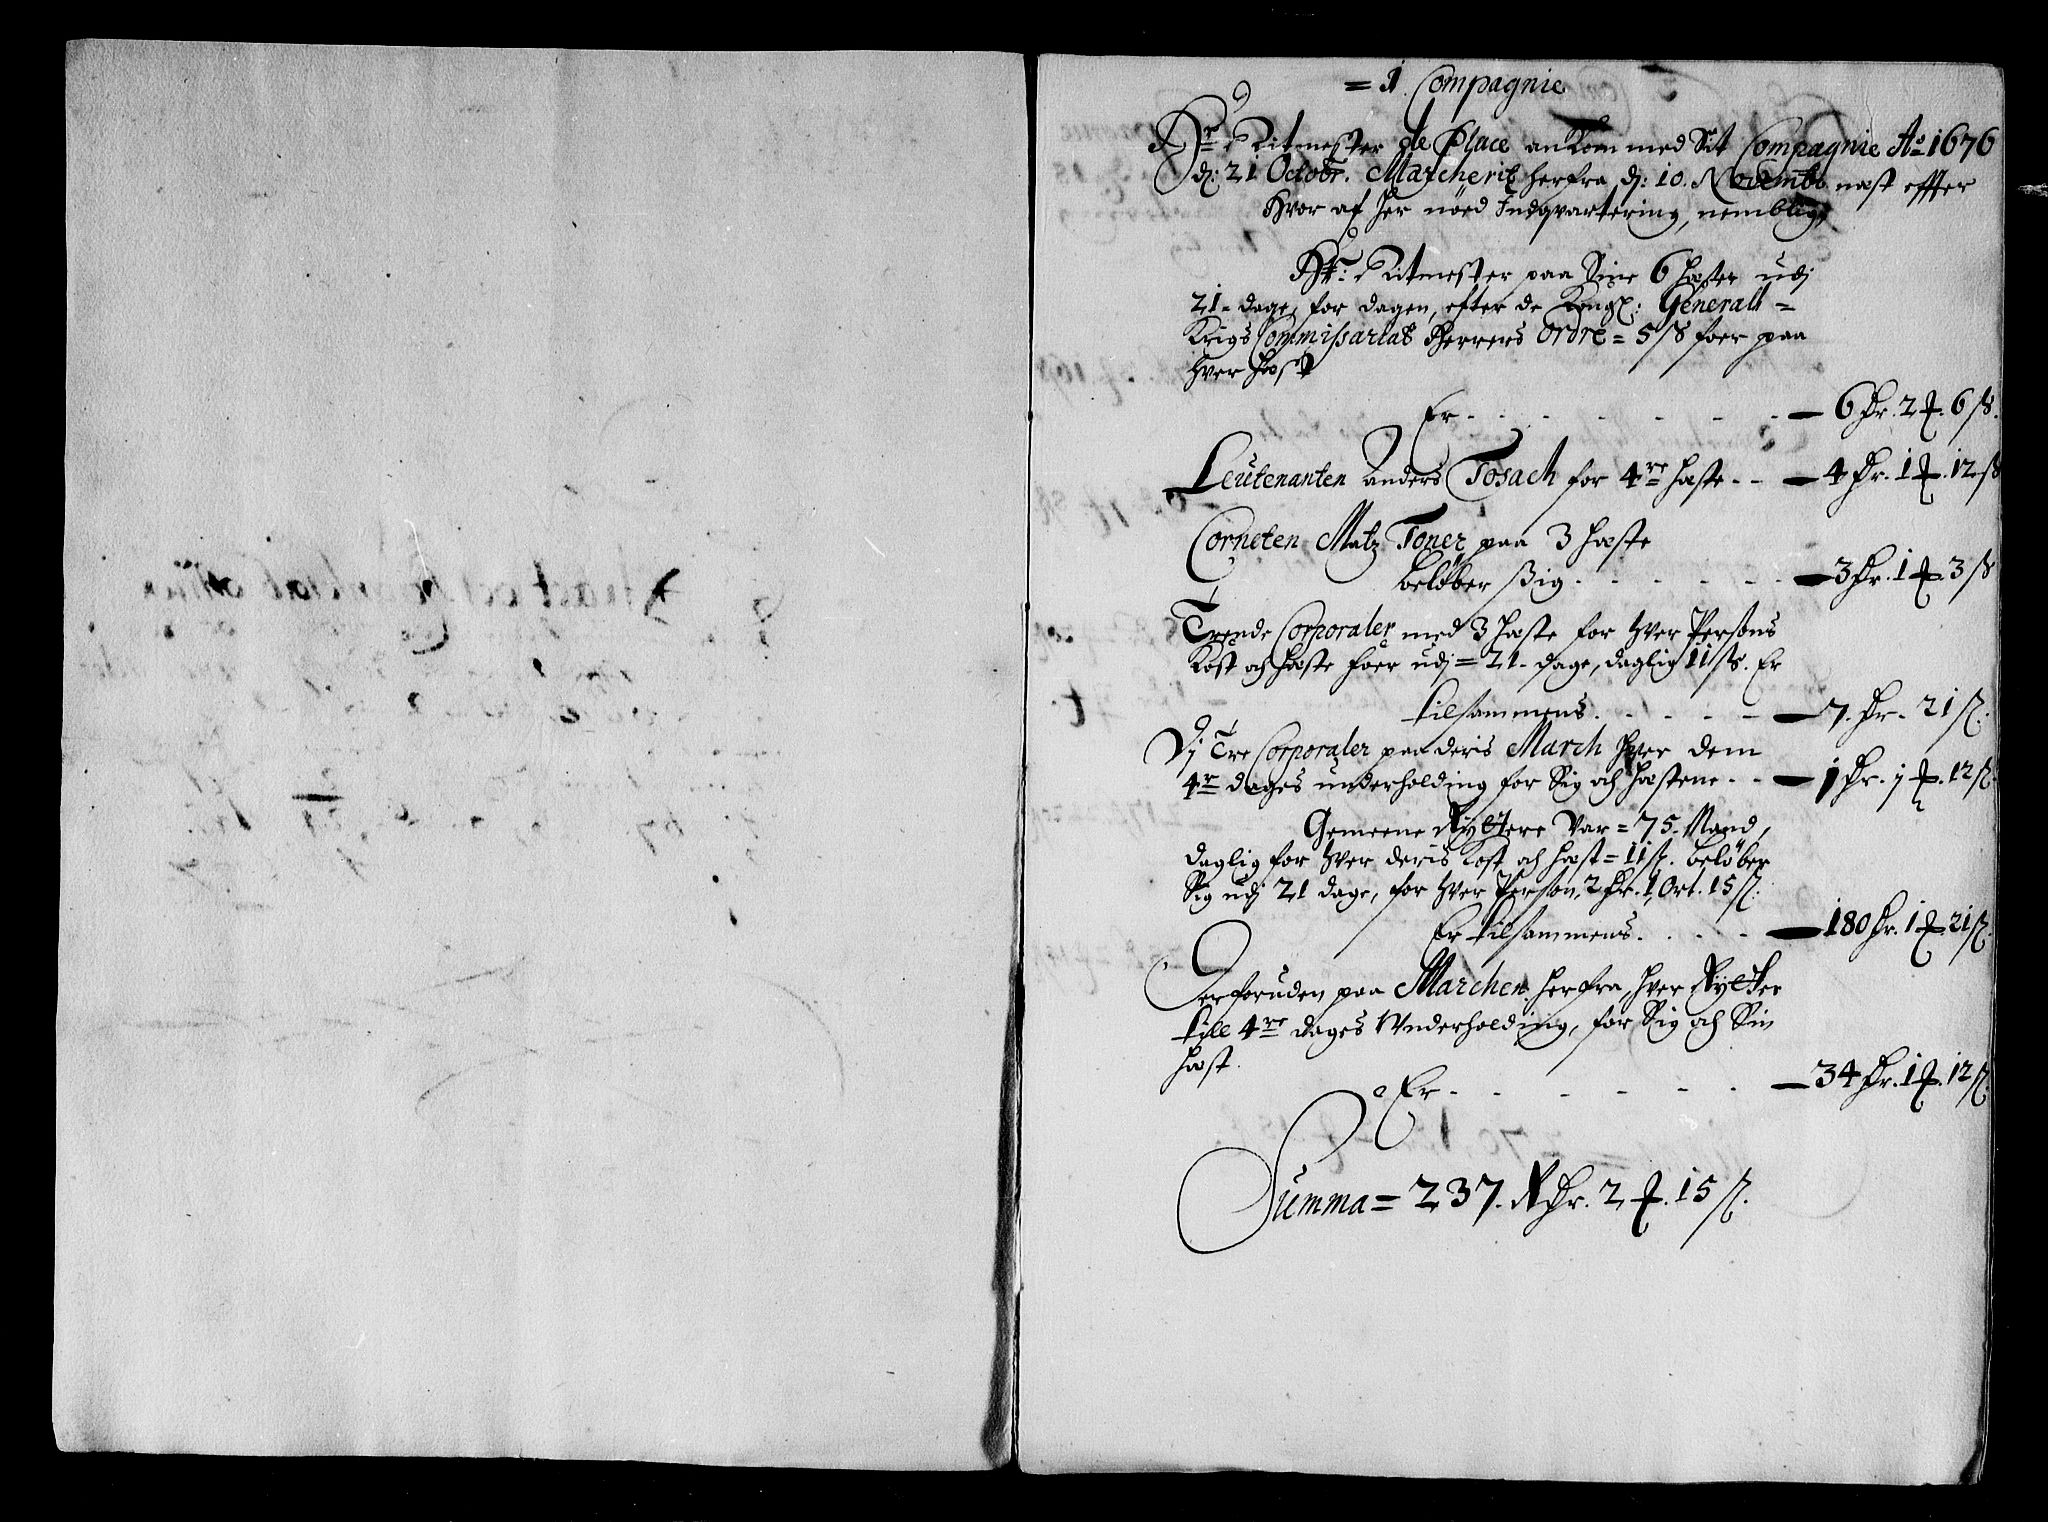 = 1. Compagnie
Hr Ritmester de Place ankom med Sit Compagnie Ao 1676
d: 21 Octobr. Marcherit herfra d: 10. Novembr næst effter
Hvor af her nöed Indqvartering, nemblig,
Hr: Ritmester paa Sine 6 hæste udj
21- dage, for dagen, efter de Kongl: Generall =
Krigs Commissariats Herrers Ordre = 5 ß foer paa
hver hæst
Er - - - - - - 6 Dr. 2 ƒ. 6 ß.
Leutenanten Anders Tosach for 4re hæste - - 4 Dr. 1 ƒ. 12 ß
Corneten Matz Toner paa 3 hæste
belöber ßig - - - - - 3 Dr. 1 ƒ. 3 ß
Trende Corporaler med 3 hæste for hver Persons
Kost och hæste foer udj = 21- dage, daglig 11 ß. Er
tilsammens. - - - - 7. Dr. 21 ß.
Dj Tre Corporaler paa deris March hver dem
4re dages underholding for Sig och hæstene - - 1 Dr. 1 ƒ. 12 ß.
Gemeene Ryttere Var = 75. Mand,
daglig for hver deris Kost och hæst = 11 ß. belöber
Sig udj 21 dage, for hver Person, 2 Dr. 1, Ort. 15 ß.
Er tilsammens. - - - 180 Dr. 1 ƒ. 21 ß.
Derforuden paa Marchen herfra, hver Rytter
till 4re dages Underholding, for Sig och Sin
hæst.
Er - - - - - - 34 Dr. 1 ƒ. 12 ß.
Summa = 237. RDr. 2 ƒ. 15 ß.